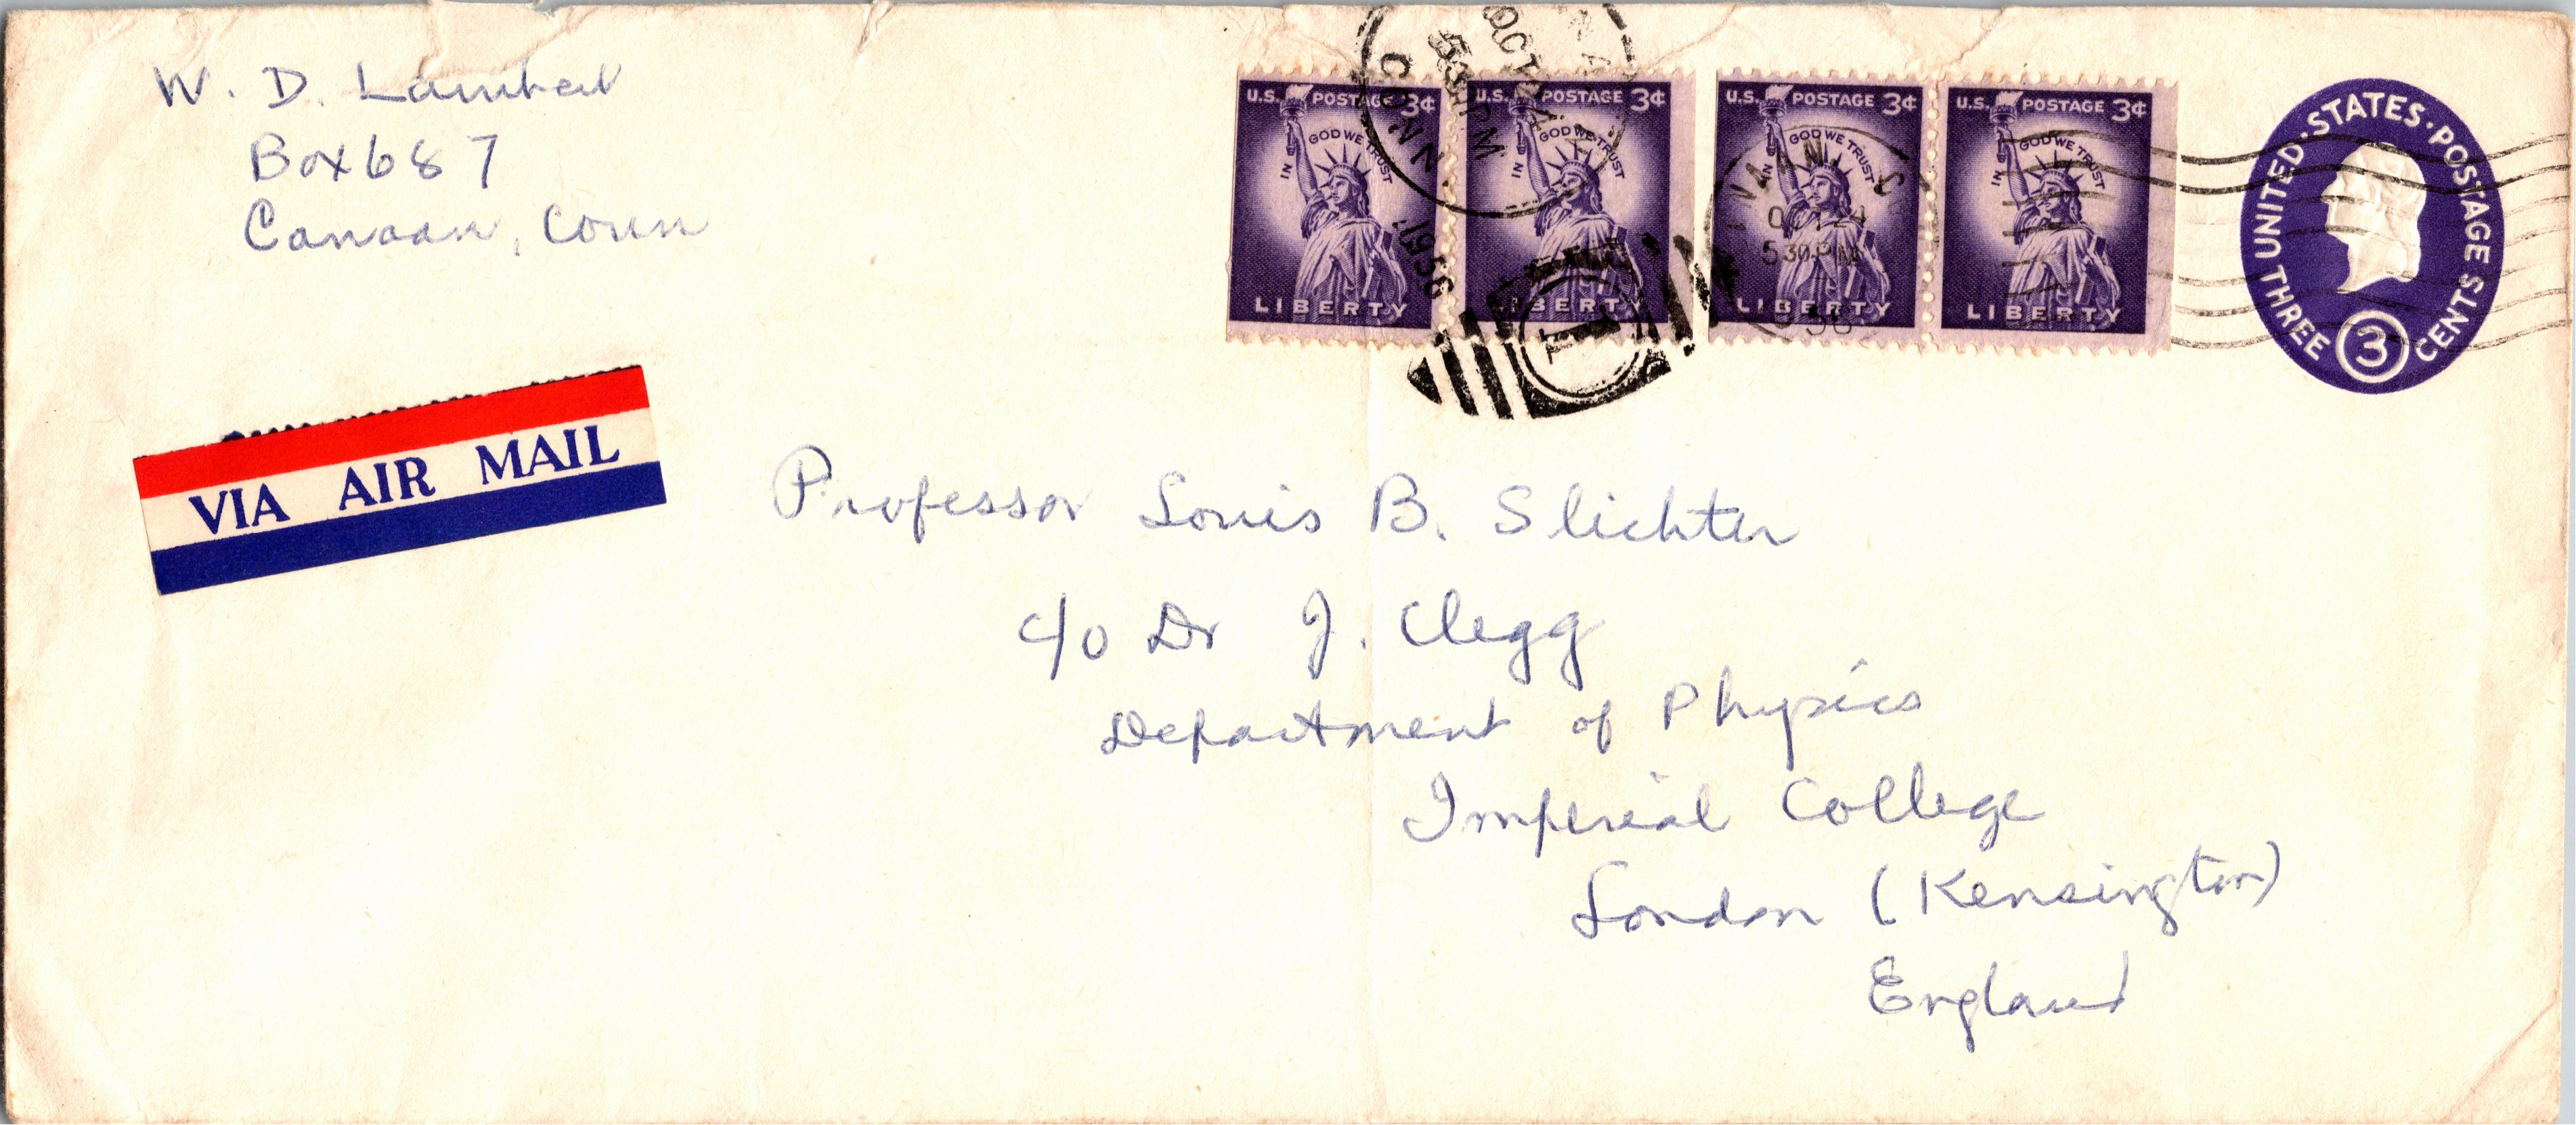 W. D. Lambert
Box 687
Canaan, Conn
U.S. POSTAGE 3¢
IN GOD WE TRUST
LIBERTY
U.S. POSTAGE 3¢
IN GOD WE TRUST
LIBERTY
U.S. POSTAGE 3¢
IN GOD WE TRUST
LIBERTY
U.S. POSTAGE 3¢
IN GOD WE TRUST
LIBERTY
OCT
5 30 PM
1956
CONN.
5 30 PM
UNITED · STATES · POSTAGE
THREE 3 CENTS
VIA AIR MAIL
Professor Louis B. Slichter
c/o Dr J. Clegg
Department of Physics
Imperial College
London (Kensington)
England